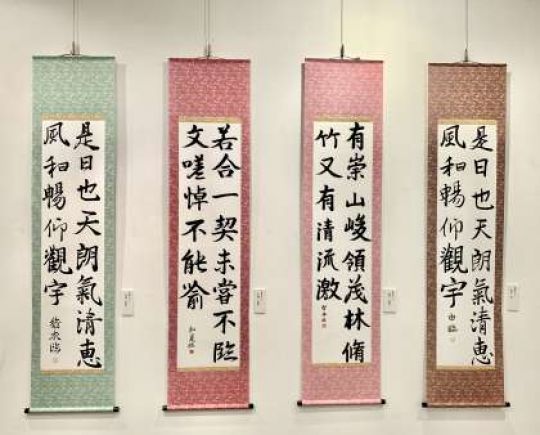 是日也天朗氣清恵
風和暢仰觀宇
臨
若合一契未嘗不臨
文嗟悼不能喻
有崇山峻領茂林脩
竹又有清流激
是日也天朗氣清恵
風和暢仰觀宇
臨